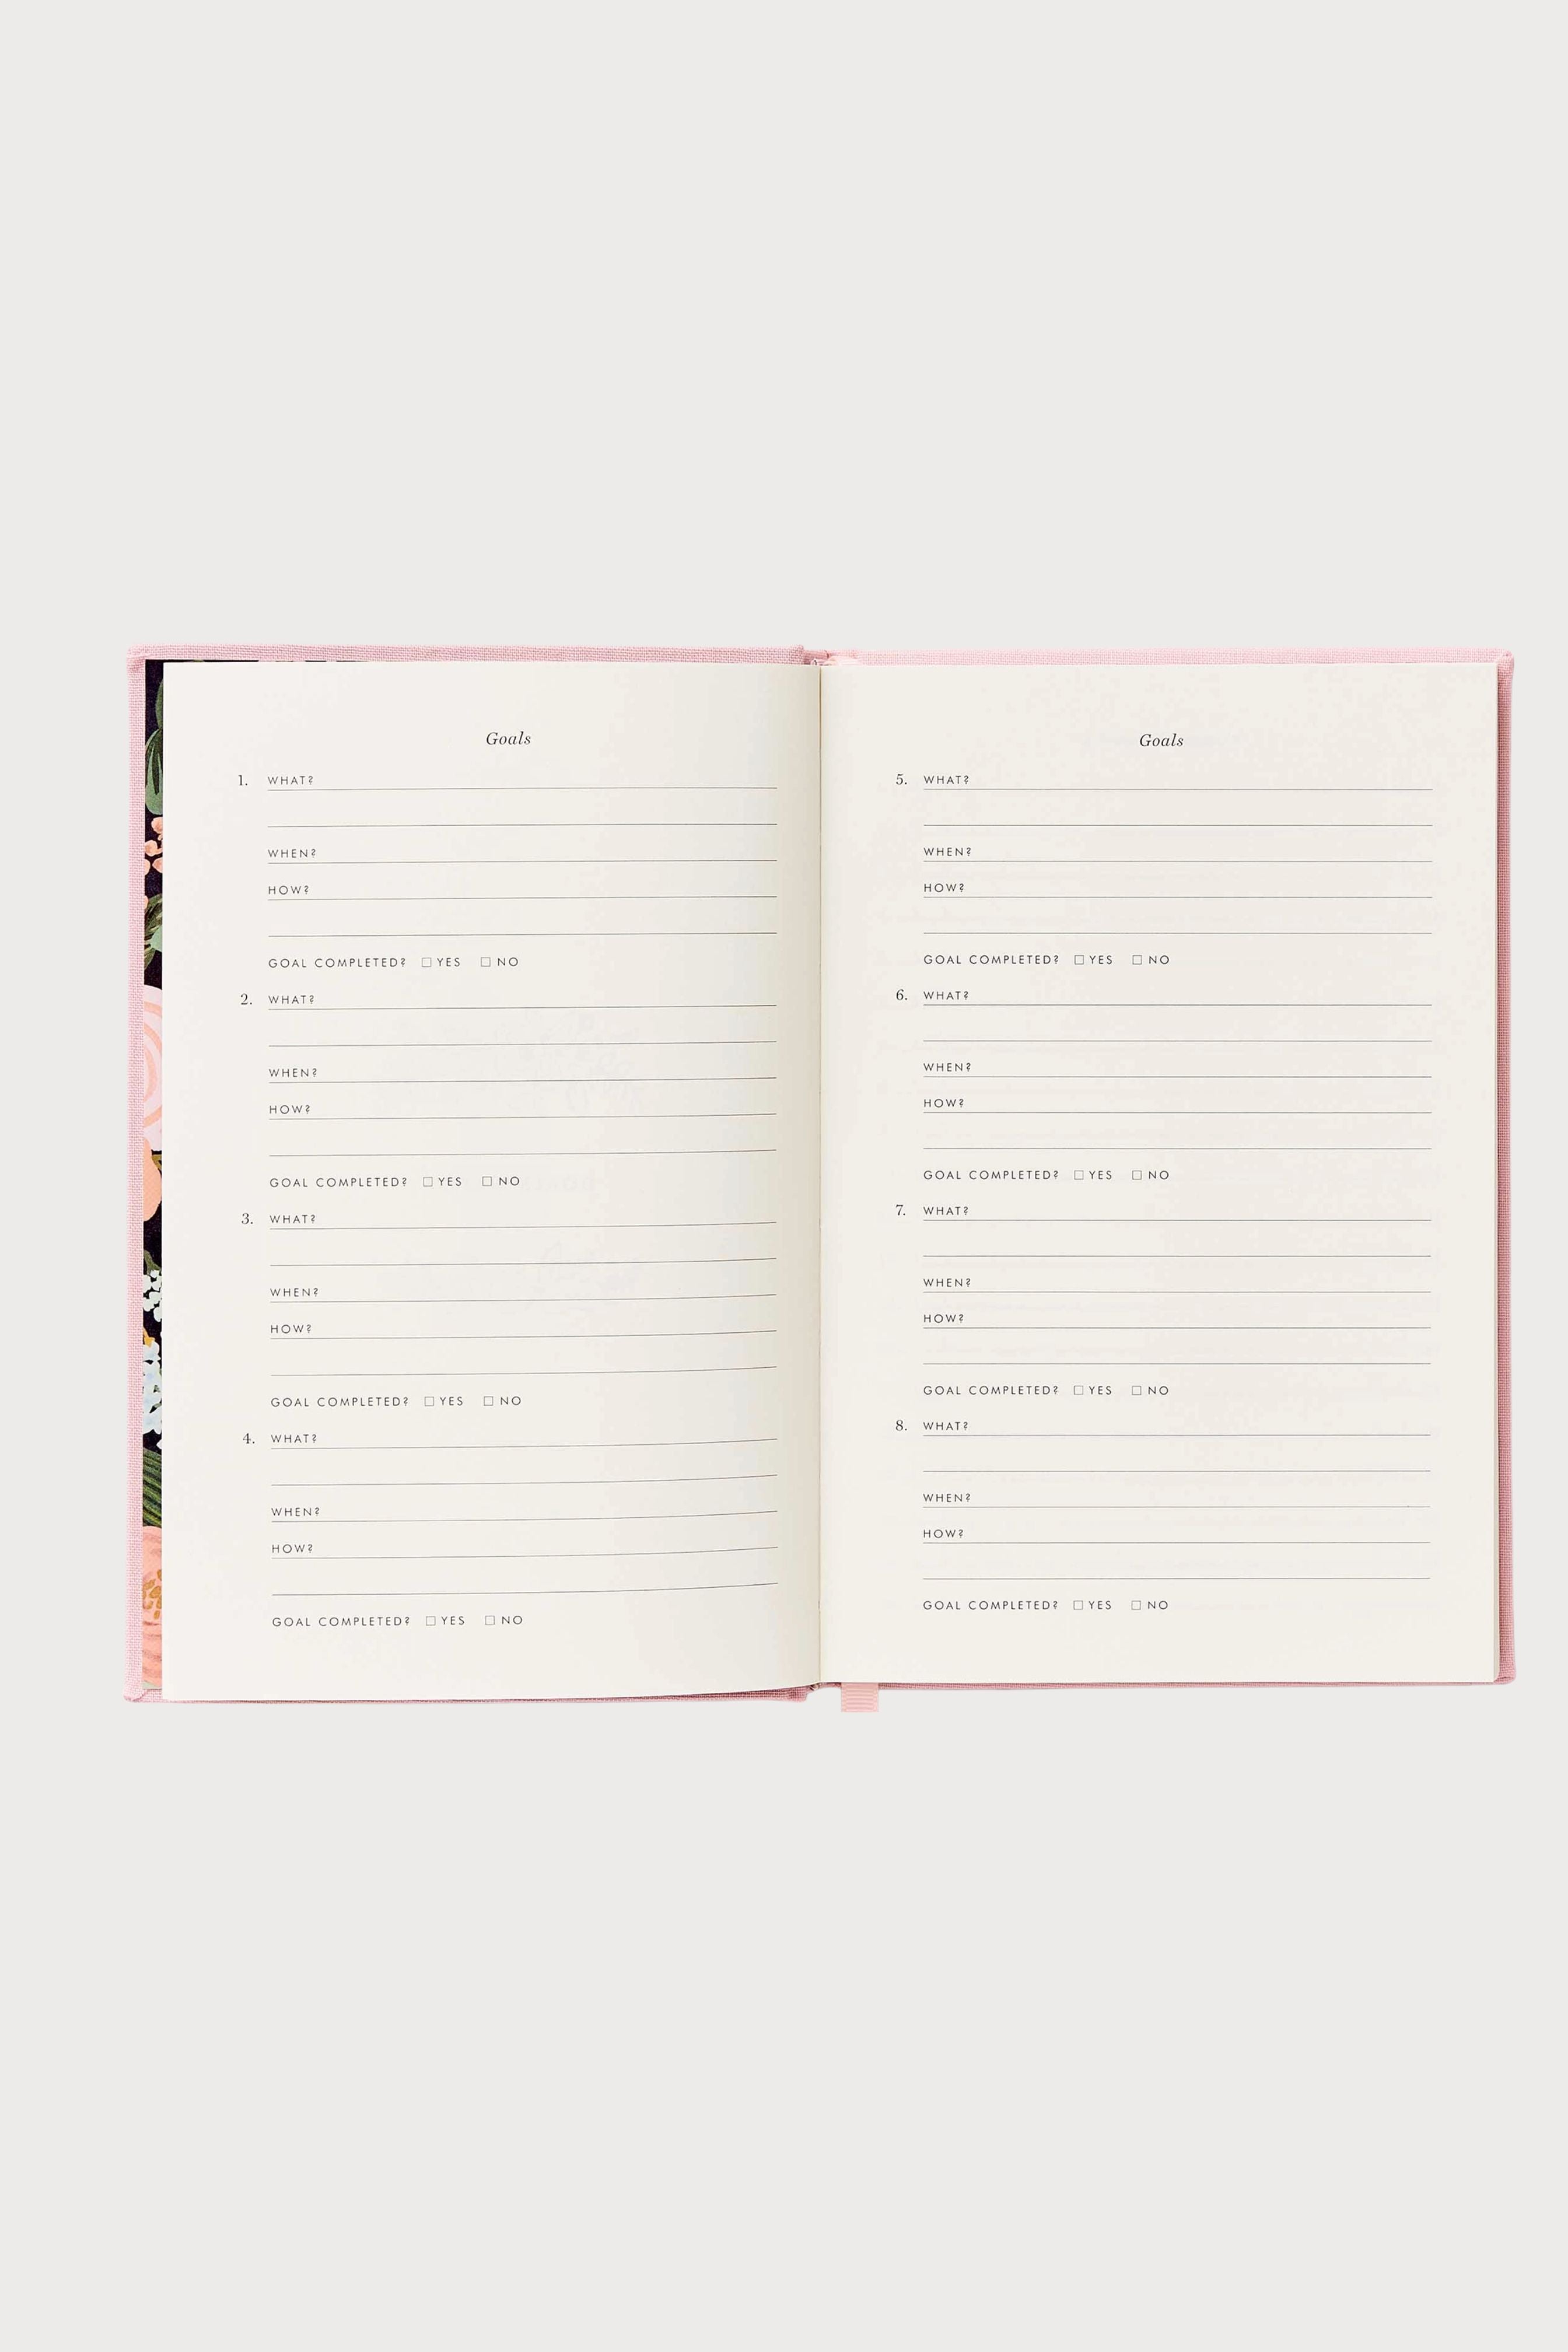 Goals
1. WHAT?
WHEN?
HOW?
GOAL COMPLETED? ☐ YES ☐ NO
2. WHAT?
WHEN?
HOW?
GOAL COMPLETED? ☐ YES ☐ NO
3. WHAT?
WHEN?
HOW?
GOAL COMPLETED? ☐ YES ☐ NO
4. WHAT?
WHEN?
HOW?
GOAL COMPLETED? ☐ YES ☐ NO
Goals
5. WHAT?
WHEN?
HOW?
GOAL COMPLETED? ☐ YES ☐ NO
6. WHAT?
WHEN?
HOW?
GOAL COMPLETED? ☐ YES ☐ NO
7. WHAT?
WHEN?
HOW?
GOAL COMPLETED? ☐ YES ☐ NO
8. WHAT?
WHEN?
HOW?
GOAL COMPLETED? ☐ YES ☐ NO